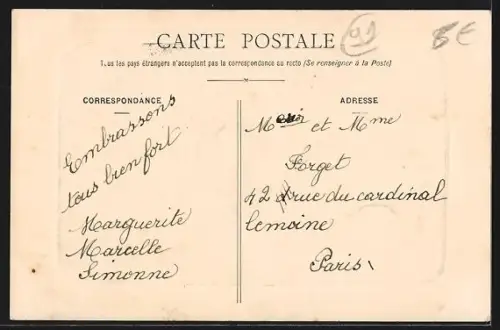 91
8€
CARTE POSTALE
Tous les pays étrangers n'acceptent pas la correspondance au recto (Se renseigner à la Poste)
CORRESPONDANCE
Embrassons
tous bien fort
Marguerite
Marcelle
Simonne
ADRESSE
et Mme
Forget
42 rue du cardinal
Lemoine
Paris